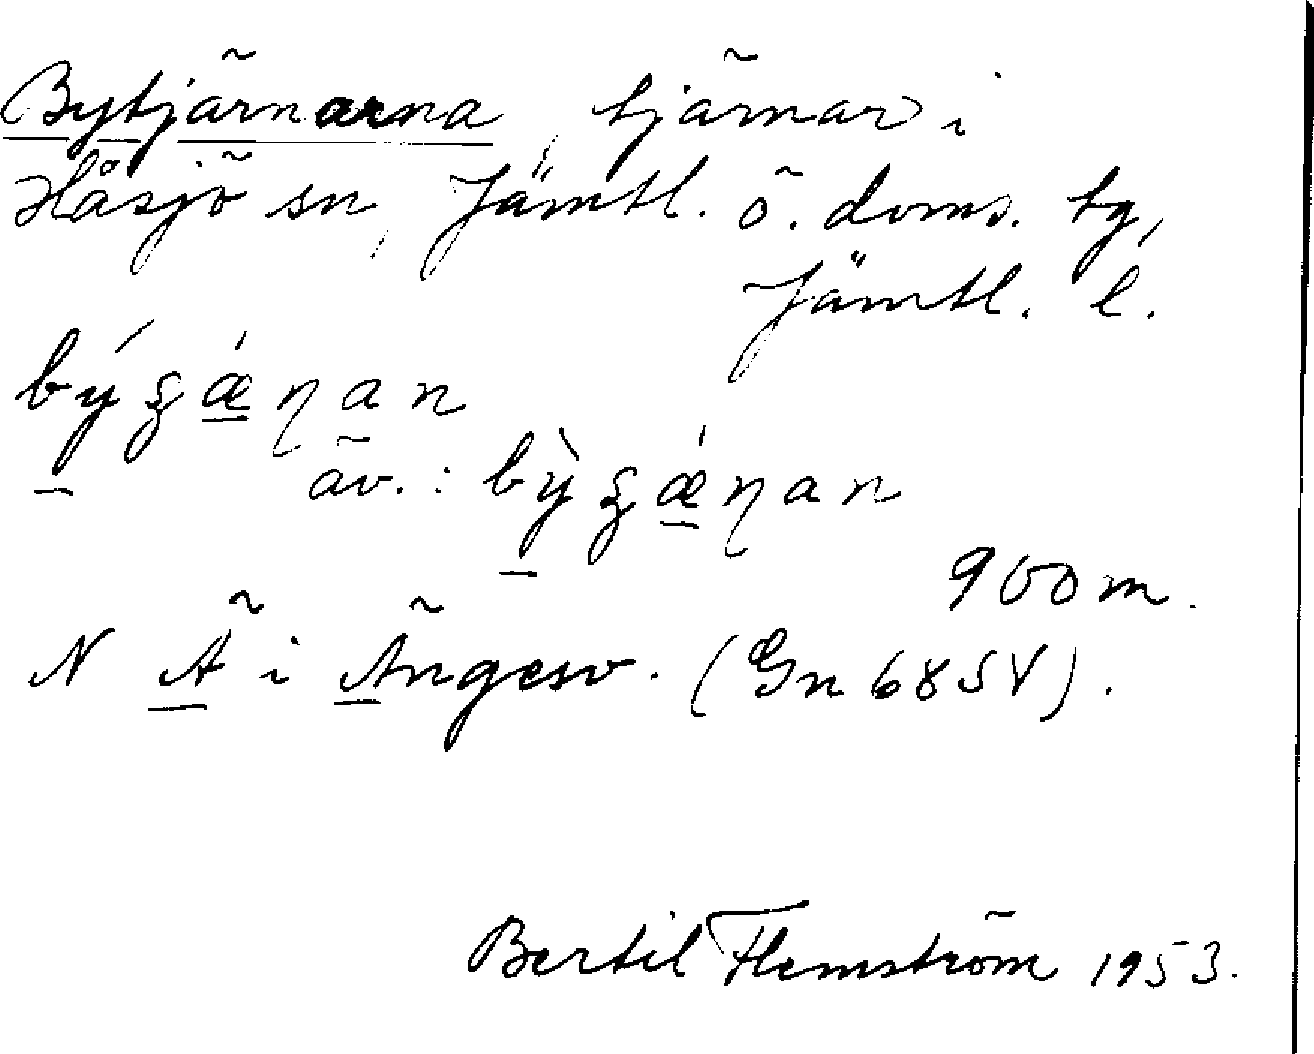 Bytjärnarna, tjärnar i
Håsjö sn, Jämtl. ö. doms. tg,
Jämtl. l.
äv.:
900 m.
N Ä i Ängesv. (Gn 68 SV).
Bertil Flemström 1953.